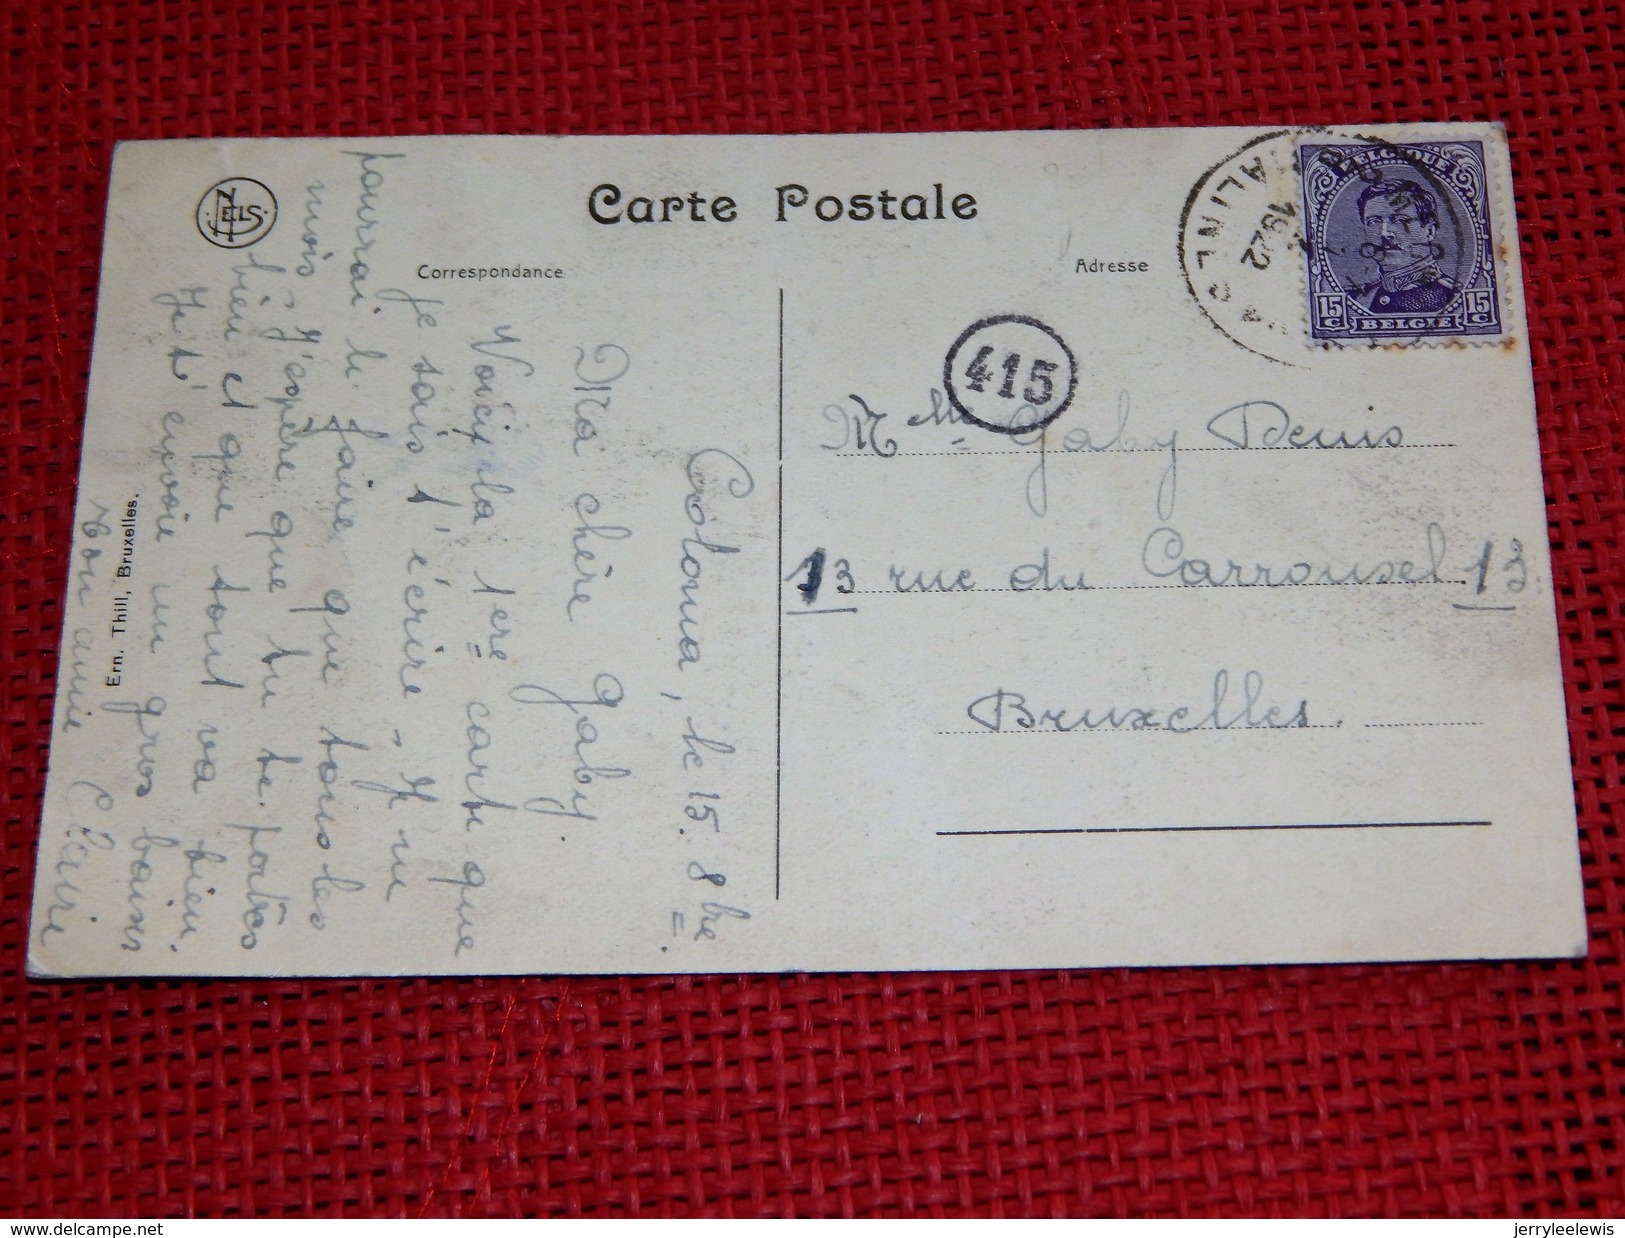 Carte Postale
Correspondance
Adresse
NELS
Ern. Thill, Bruxelles.
BELGIQUE
15 C
15 C
BELGIE
MALINES
1922
415
Mlle Gaby Denis
13 rue du Carrousel 13
Bruxelles.
Coloma, le 15. 8bre.
Ma chère Gaby.
Voici la 1ere carte que
je sais t'écrire, Je ne
pourrai le faire que tous les
mois, J'espère que tu te portes
bien et que tout va bien.
Je t'envoie un gros baiser
Ton amie Claire
www.delcampe.net
jerryleelewis